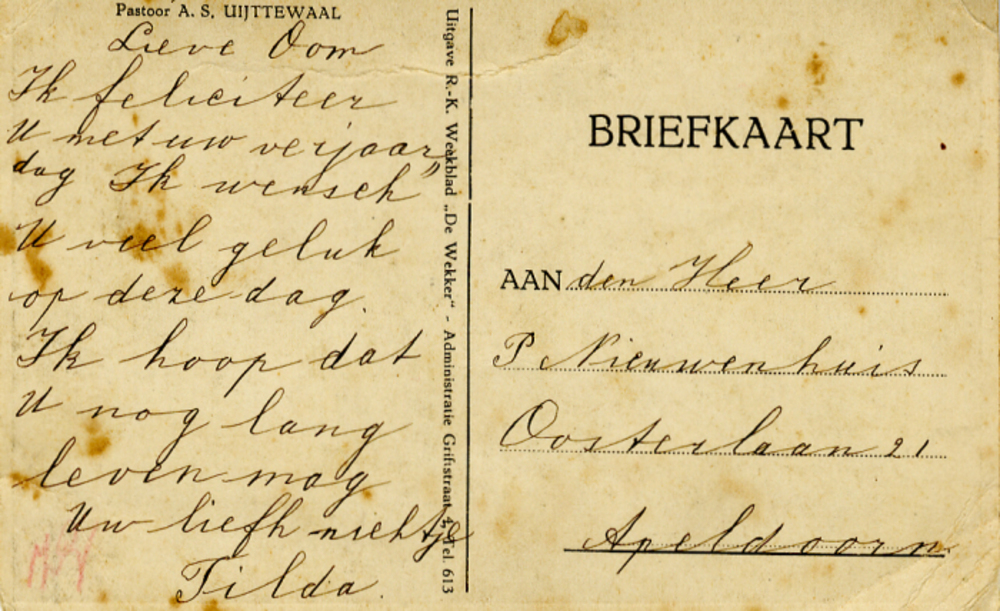 Pastoor A. S. UIJTTEWAAL
Lieve Oom
Ik feliciteer
U met uw verjaar„
dag Ik wensch
U veel geluk
op deze dag.
Ik hoop dat
U nog lang
leven mag
Uw liefh nichtje
Tilda.
Uitgave R.-K. Weekblad „De Wekker“ - Administratie Griftstraat 4, Tel. 613
BRIEFKAART
AAN den Heer
P Nieuwenhuis
Oosterlaan 21
Apeldoorn.